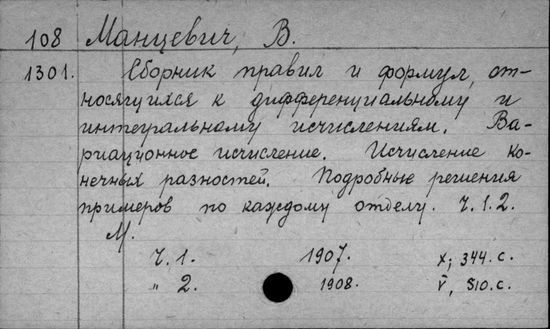 108 Манцевич, В.
1301. Сборник правил и формул, от-
носящихся к дифференциальному и
интегральному исчислениям. Ва-
риационное исчисление. Исчисление ко-
нечных разностей. Подробные решения
примеров по каждому отделу. Ч. 1. 2.
М.
Ч. 1. 1907. X; 344. с.
" 2. 1908. V, 510. с.